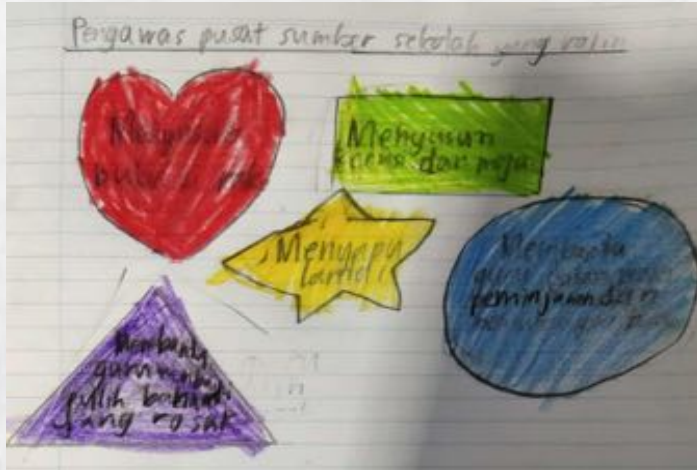 Pengawas pusat sumber sekolah yang rajin
Menyusun
buku di rak
Menyusun
kerusi dan meja
Menyapu
lantai
Membantu
guru
peminjaman dan
Membantu
guru
pulih bahan
yang rosak